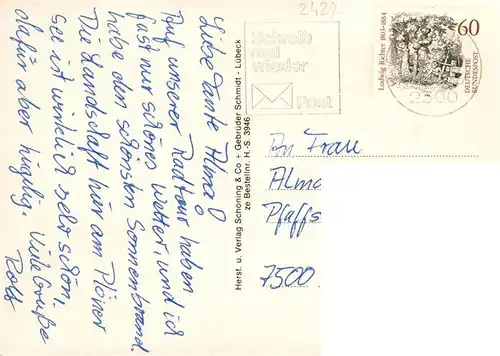 Liebe Tante Alma!
Auf unserer Radtour haben
fast nur schönes Wetter, und ich
habe den schönsten Sonnenbrand.
Die Landschaft hier am Plöner
See ist wirklich sehr schön,
dafür aber hüglig. Viele Grüße
Rolf
Herst. u. Verlag Schöning & Co + Gebrüder Schmidt - Lübeck
ze Bestellnr. H.-S. 3946
2429
Schreib
mal
wieder
Post
Ludwig Richter 1803-1884
60
DEUTSCHE
BUNDESPOST
2300
An Frau
Alma
Pfaffs
7500